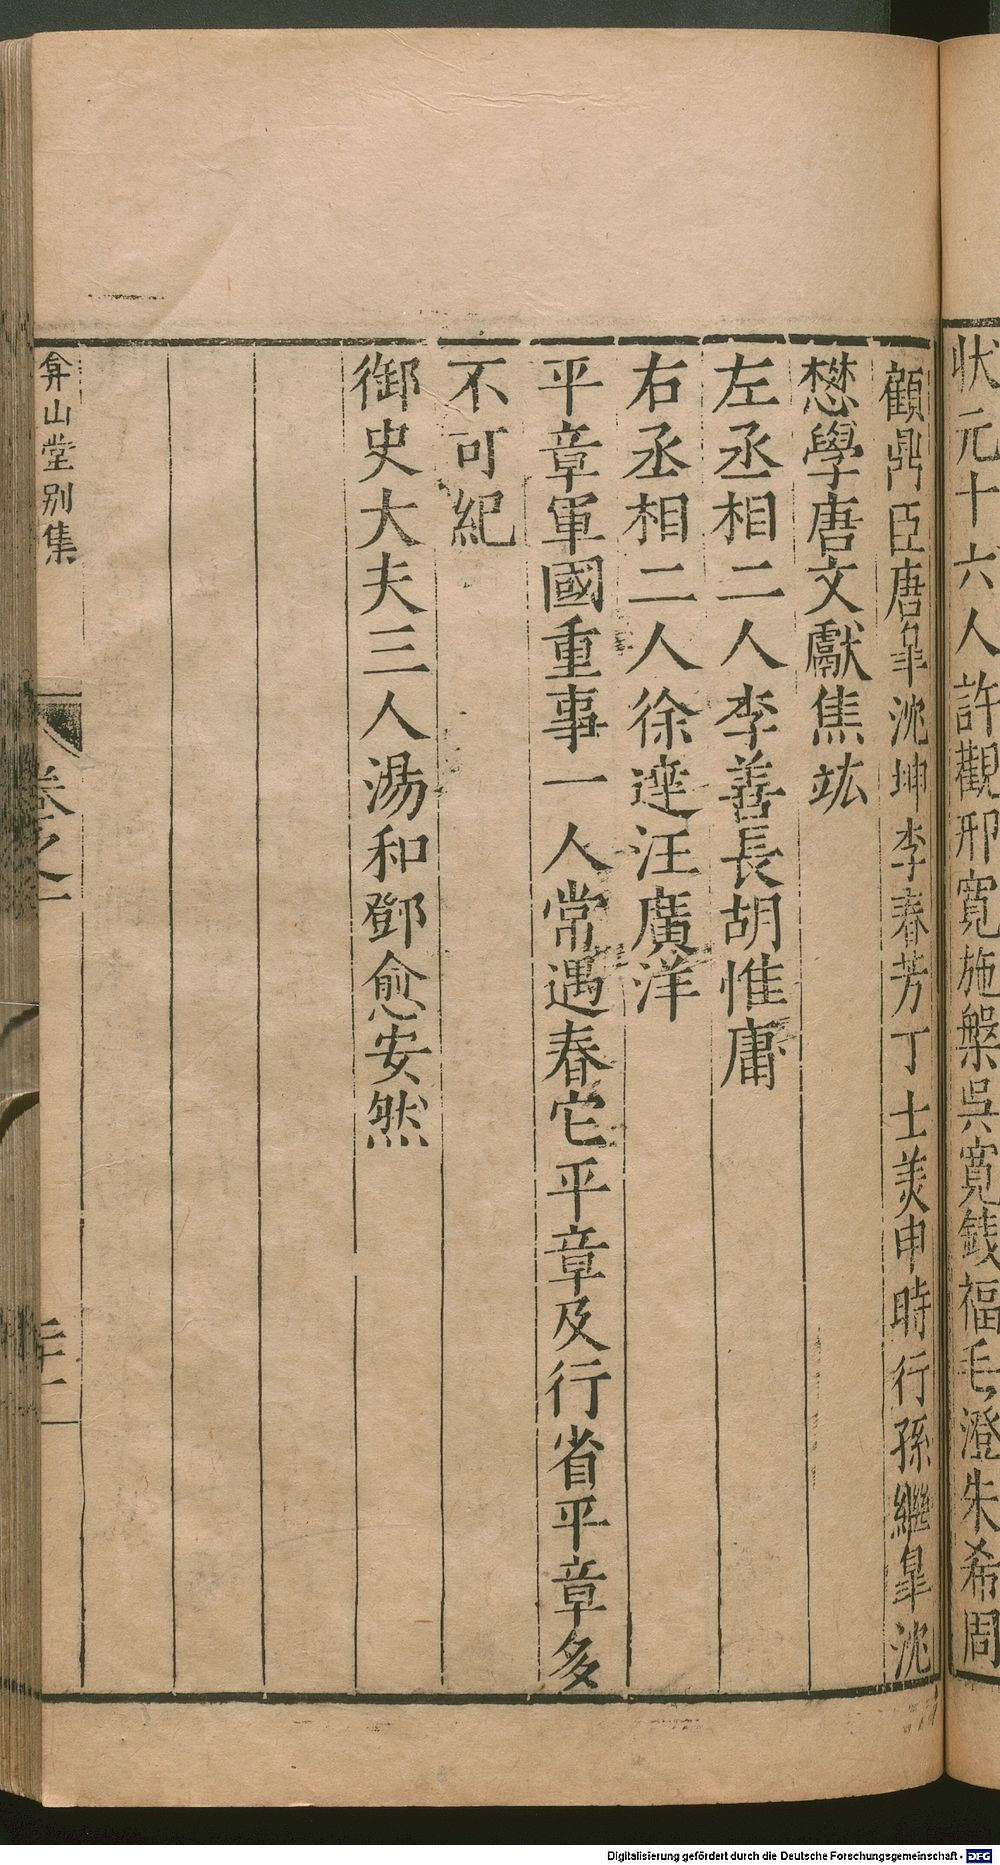 状元十六人許觀邢寛施槃吳寛錢福毛澄朱希周
顧鼎臣唐臯沈坤李春芳丁士美申時行孫繼臯沈
懋學唐文獻焦竑
左丞相二人李善長胡惟庸
右丞相二人徐逹汪廣洋
平章軍國重事一人常遇春它平章及行省平章多
不可紀
御史大夫三人湯和鄧愈安然
弇山堂别集
卷之一
Digitalisierung gefördert durch die Deutsche Forschungsgemeinschaft - DFG